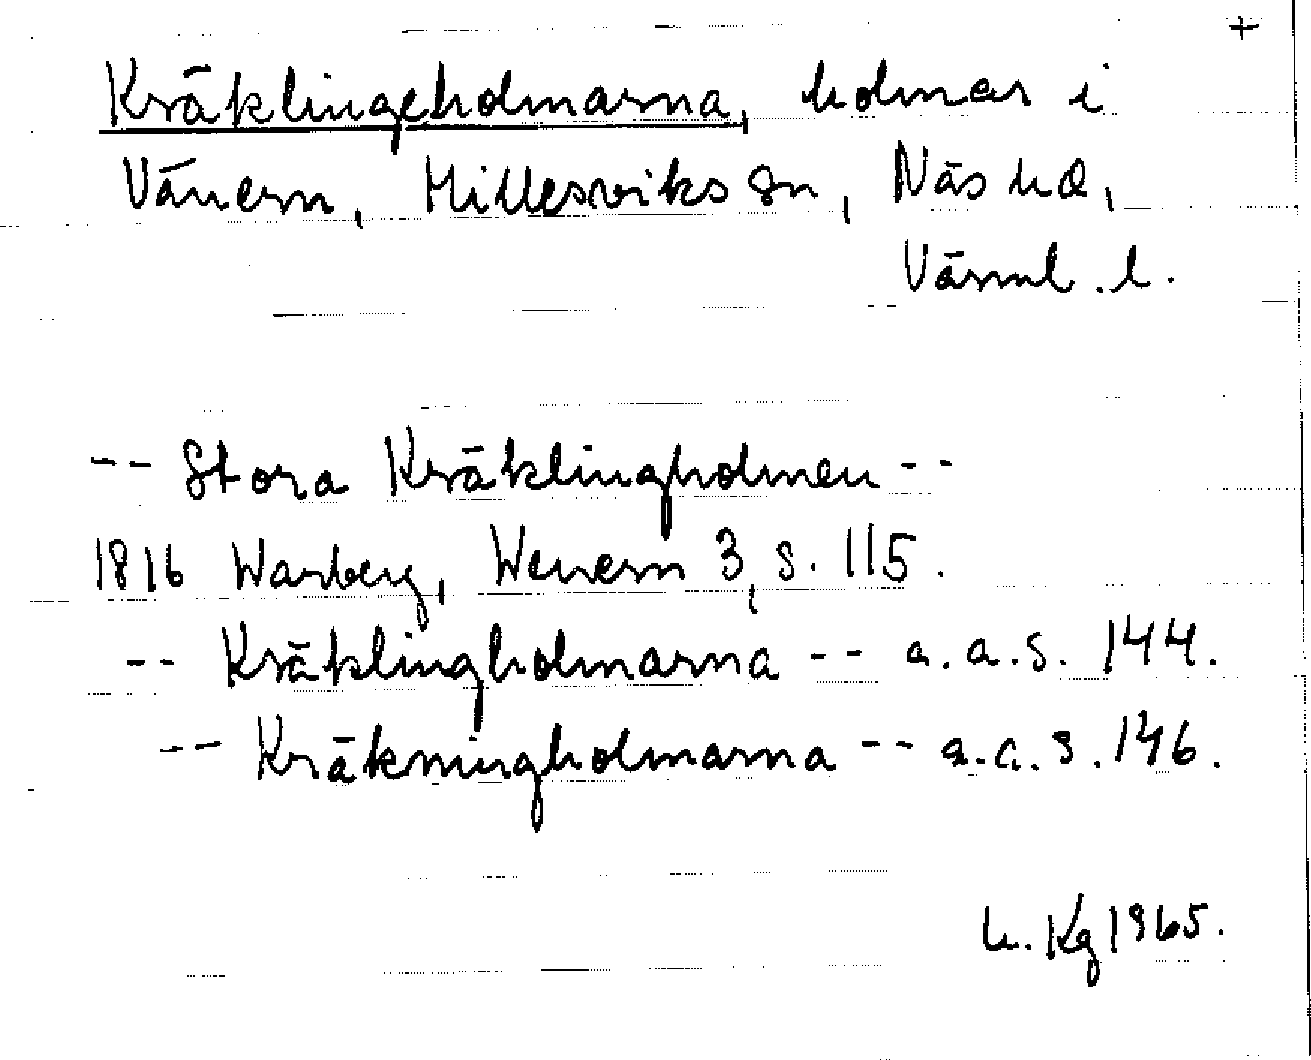 +
Kräklingeholmarna, holmar i
Vänern, Millesviks sn, Näs hd,
Värml. l.
-- Stora Kräklingholmen --
1816 Warberg, Wenern 3, s. 115.
-- Kräklingholmarna -- a.a.s. 144.
-- Kräkningholmarna -- a.a.s. 146.
h. Kg 1965.